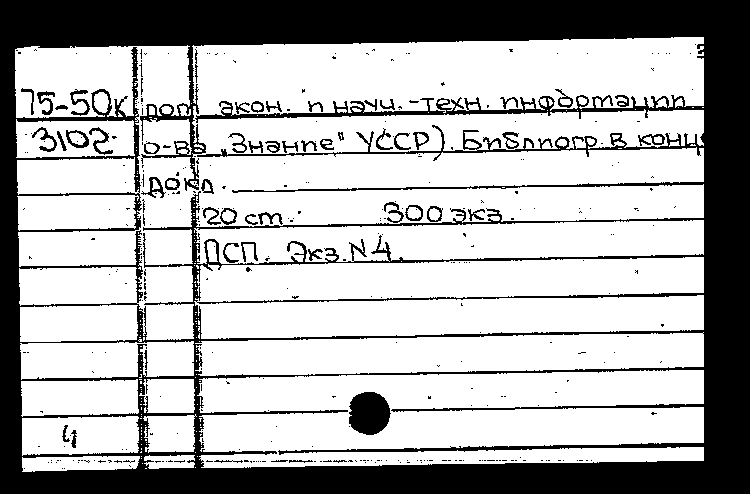 75-50к пот экон. и науч.-техн. информации
3102 о-ва "Знание" УССР). Библиогр. в конце
докл.
20 см. 300 экз.
ДСП. Экз. N 4.
4